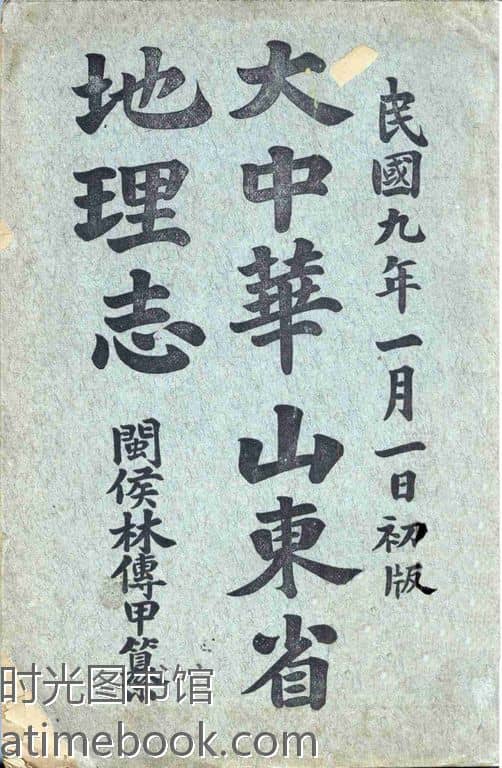 民國九年一月一日初版
大中華山東省
地理志
閩侯林傳甲纂
时光图书馆
atimebook.com